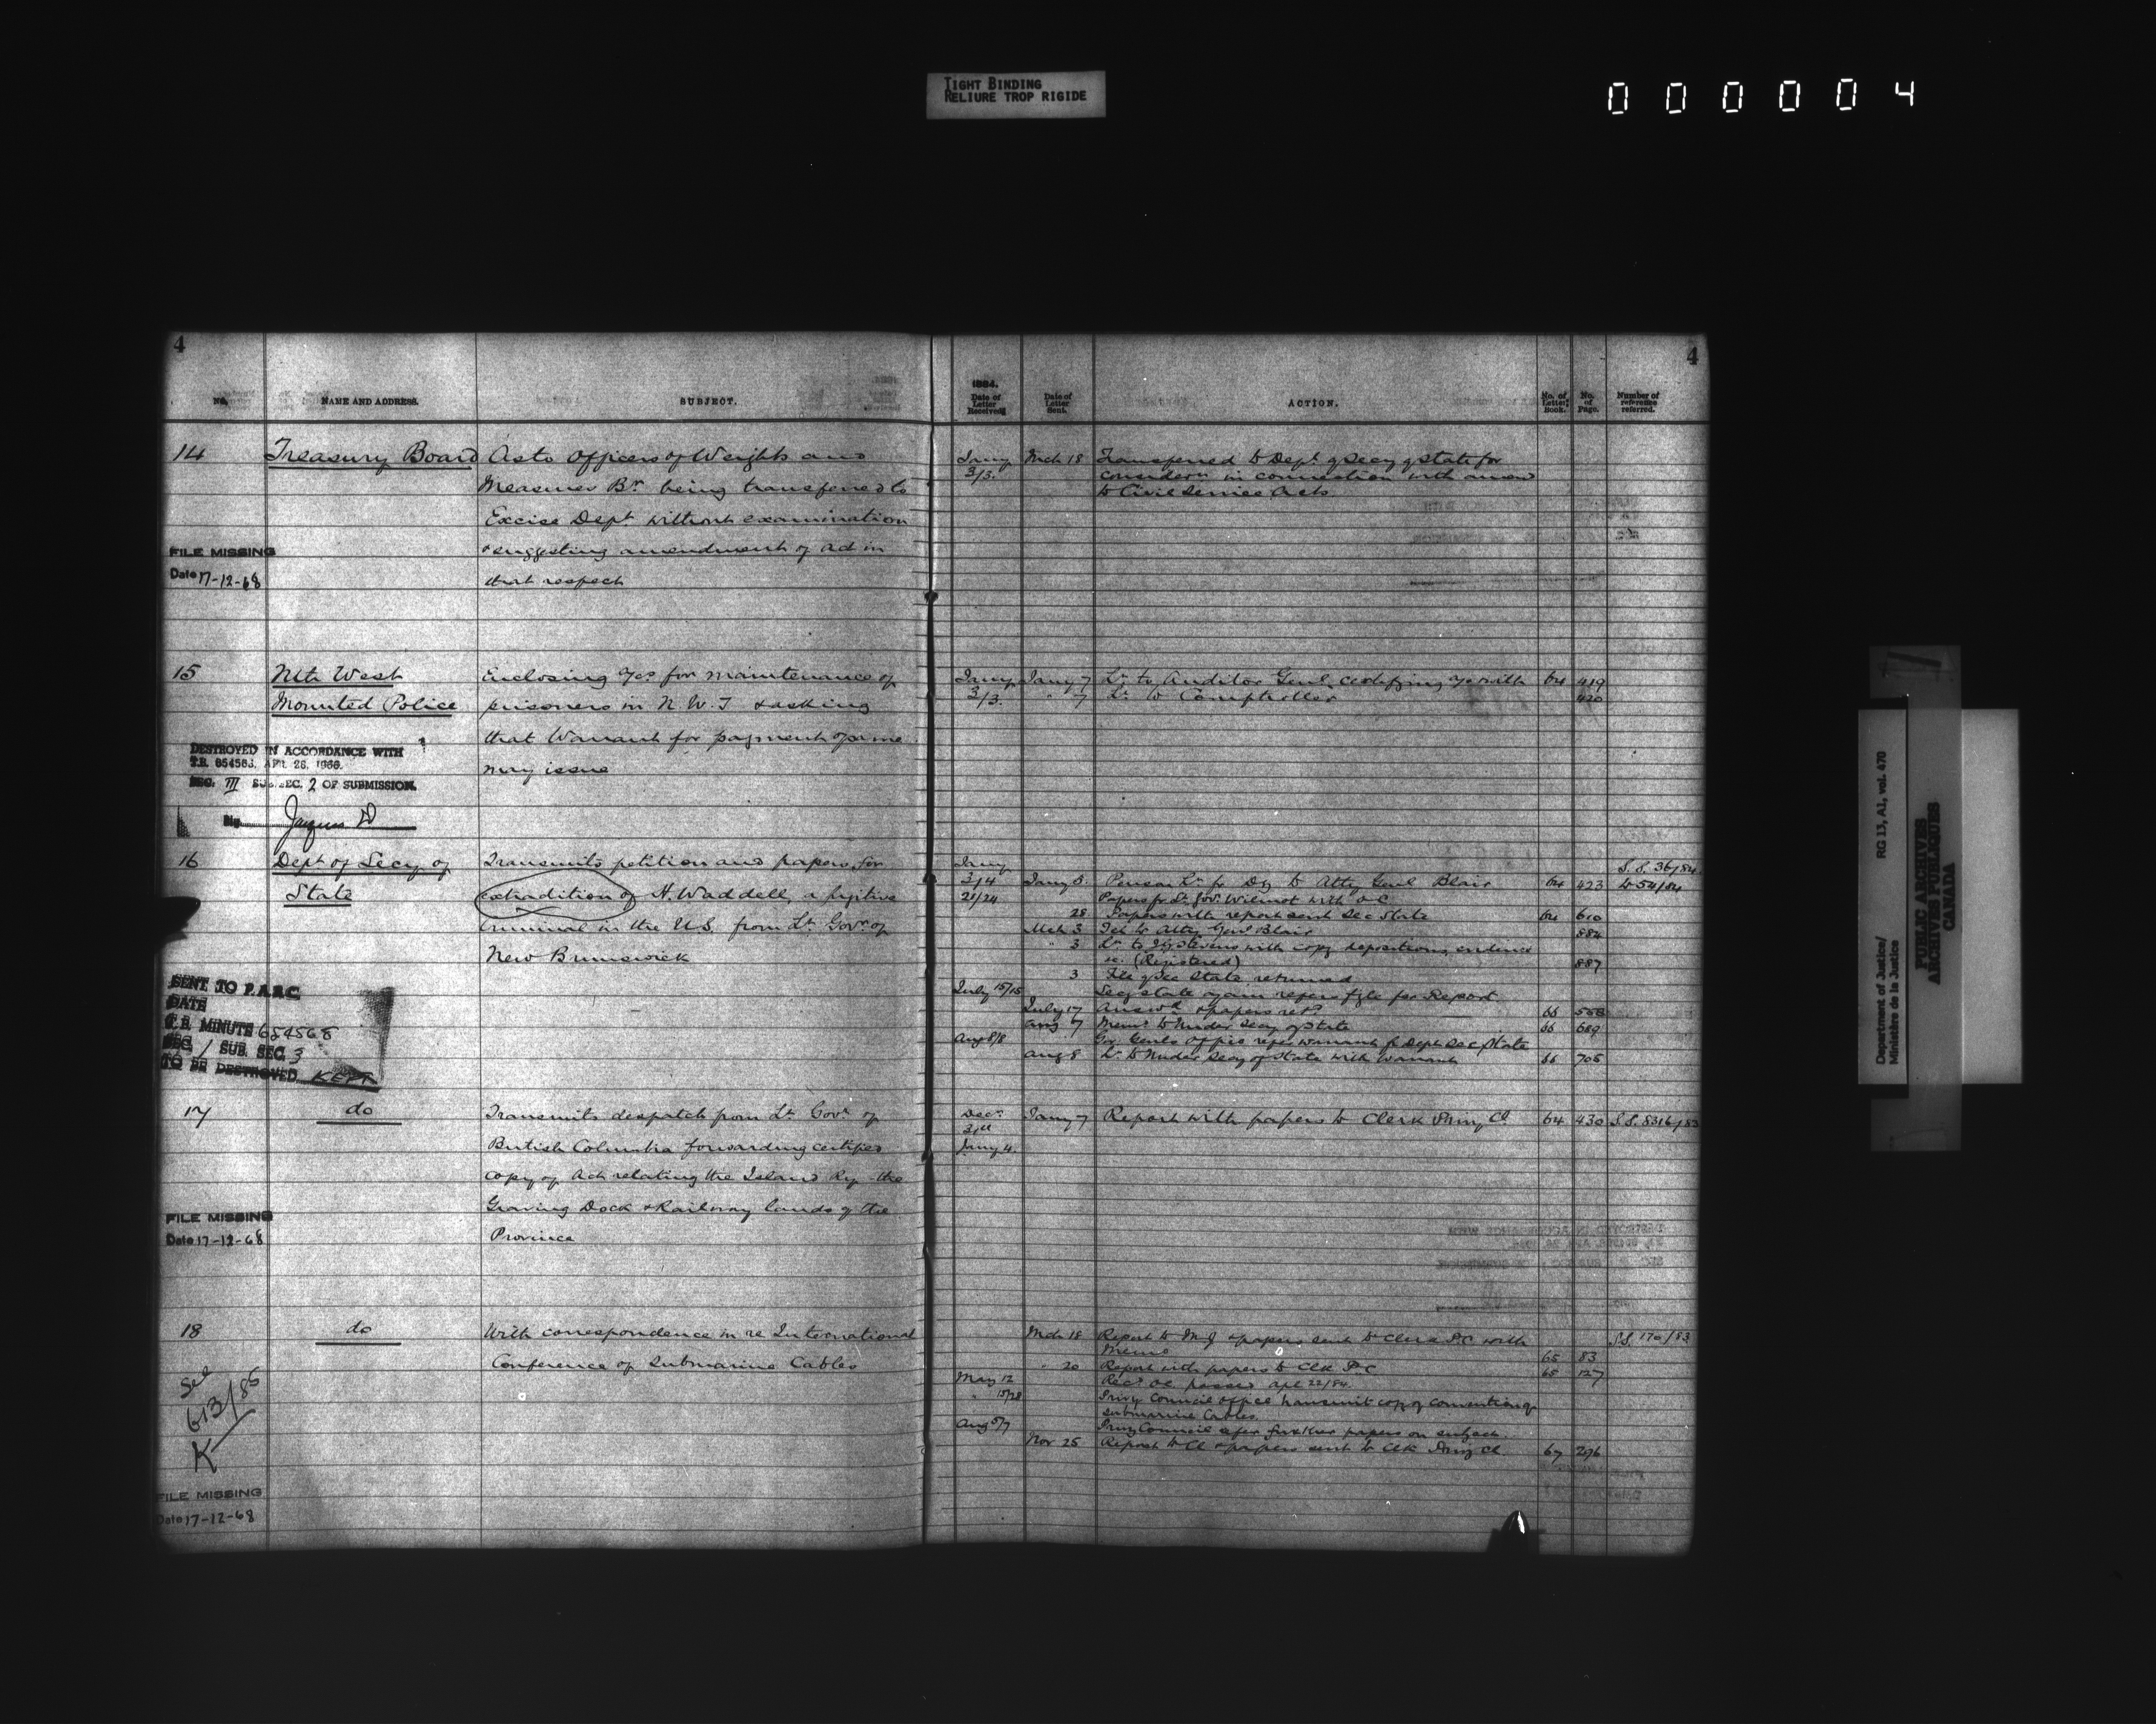 TIGHT BINDING
RELIURE TROP RIGIDE
000004
4
No.
NAME AND ADDRESS.
SUBJECT.
14
Treasury Board
As to Officers of Weights and
Measures Br. being transferred to
Excise Dept without examination
& suggesting amendment of act in
that respect
FILE MISSING
Date 17-12-68
15
Nth West
Mounted Police
Enclosing a/cs for maintenance of
prisoners in N.W.T & asking
that Warrant for payment of same
may issue
DESTROYED IN ACCORDANCE WITH
T.B. 654563, APR. 28, 1966.
SEC. III SUB SEC. 2 OF SUBMISSION.
Sig.
16
Dept of Secy of
State
Transmits petition and papers for
extradition of H. Waddell, a fugitive
criminal in the U.S. from Lt. Govr of
New Brunswick
SENT TO P.A.R.C
DATE
T.B. MINUTE 654568
SEC. 1 SUB. SEC. 3
TO BE DESTROYED KEPT
17
do
Transmits despatch from Lt Govr of
British Columbia forwarding certified
copy of Act relating the Island Ry the
Graving Dock & Railway lands of the
Province
FILE MISSING
Date 17-12-68
18
do
With correspondence in re International
Conference of Submarine Cables
See
613/85
K
FILE MISSING
Date 17-12-68
4
1884.
Date of Letter Received
Date of Letter Sent.
ACTION.
No. of Letter Book.
No. of Page.
Number of reference referred.
Jany 3/3. Mch 18 Transferred to Dept of Secy of State for
considern in connection with amend
to Civil Service Acts
Jany 3/3. Jany 7 Lr. to Auditor Genl. certifying a/c with 64 419
" 7 Lr. to Comptroller 420
Jany S.S. 36/84
3/4 Jany 5. Lr. fr Dy to Atty Genl Blair 64 423 & 54/84
21/24 Papers fr Lt. Gov. Wilmot with O C
28 Papers with report sent Sec State 64 610
Mch 3 Tel to Atty Genl Blair 884
" 3 Lr. to Stevens with copy depositions, evidence
&c. (Registered) 887
3 File of Sec State returned
July 15/15 Secy State again refers file for Report
July 17 & papers retd 66 558
Aug 7 Memo to Under Secy of State 66 689
Aug 8/8 Gov Genls Office refer warrant fr Dept Sec State
Aug 8 Lr. to Under Secy of State with Warrant 66 705
Decr 31st Jany 7 Report with papers to Clerk Privy Cl 64 430 S.S. 8316/83
Jany 4.
Mch 18 Report to M J & papers sent to Clerk P.C with S.S. 170/83
Memo 65 83
" 20 Report with papers to Clk P C 65 127
May 12 Recd O.C. passed Apl 22/84.
" 15/28 Privy Council Office transmit copy of convention of
Submarine Cables.
Aug 5/7 Privy Council refer further papers on subject.
Nov 25 Report to Cl & papers sent to Clk Privy Cl 67 296
Department of Justice/
Ministère de la Justice
RG 13, A1, vol. 470
PUBLIC ARCHIVES
ARCHIVES PUBLIQUES
CANADA